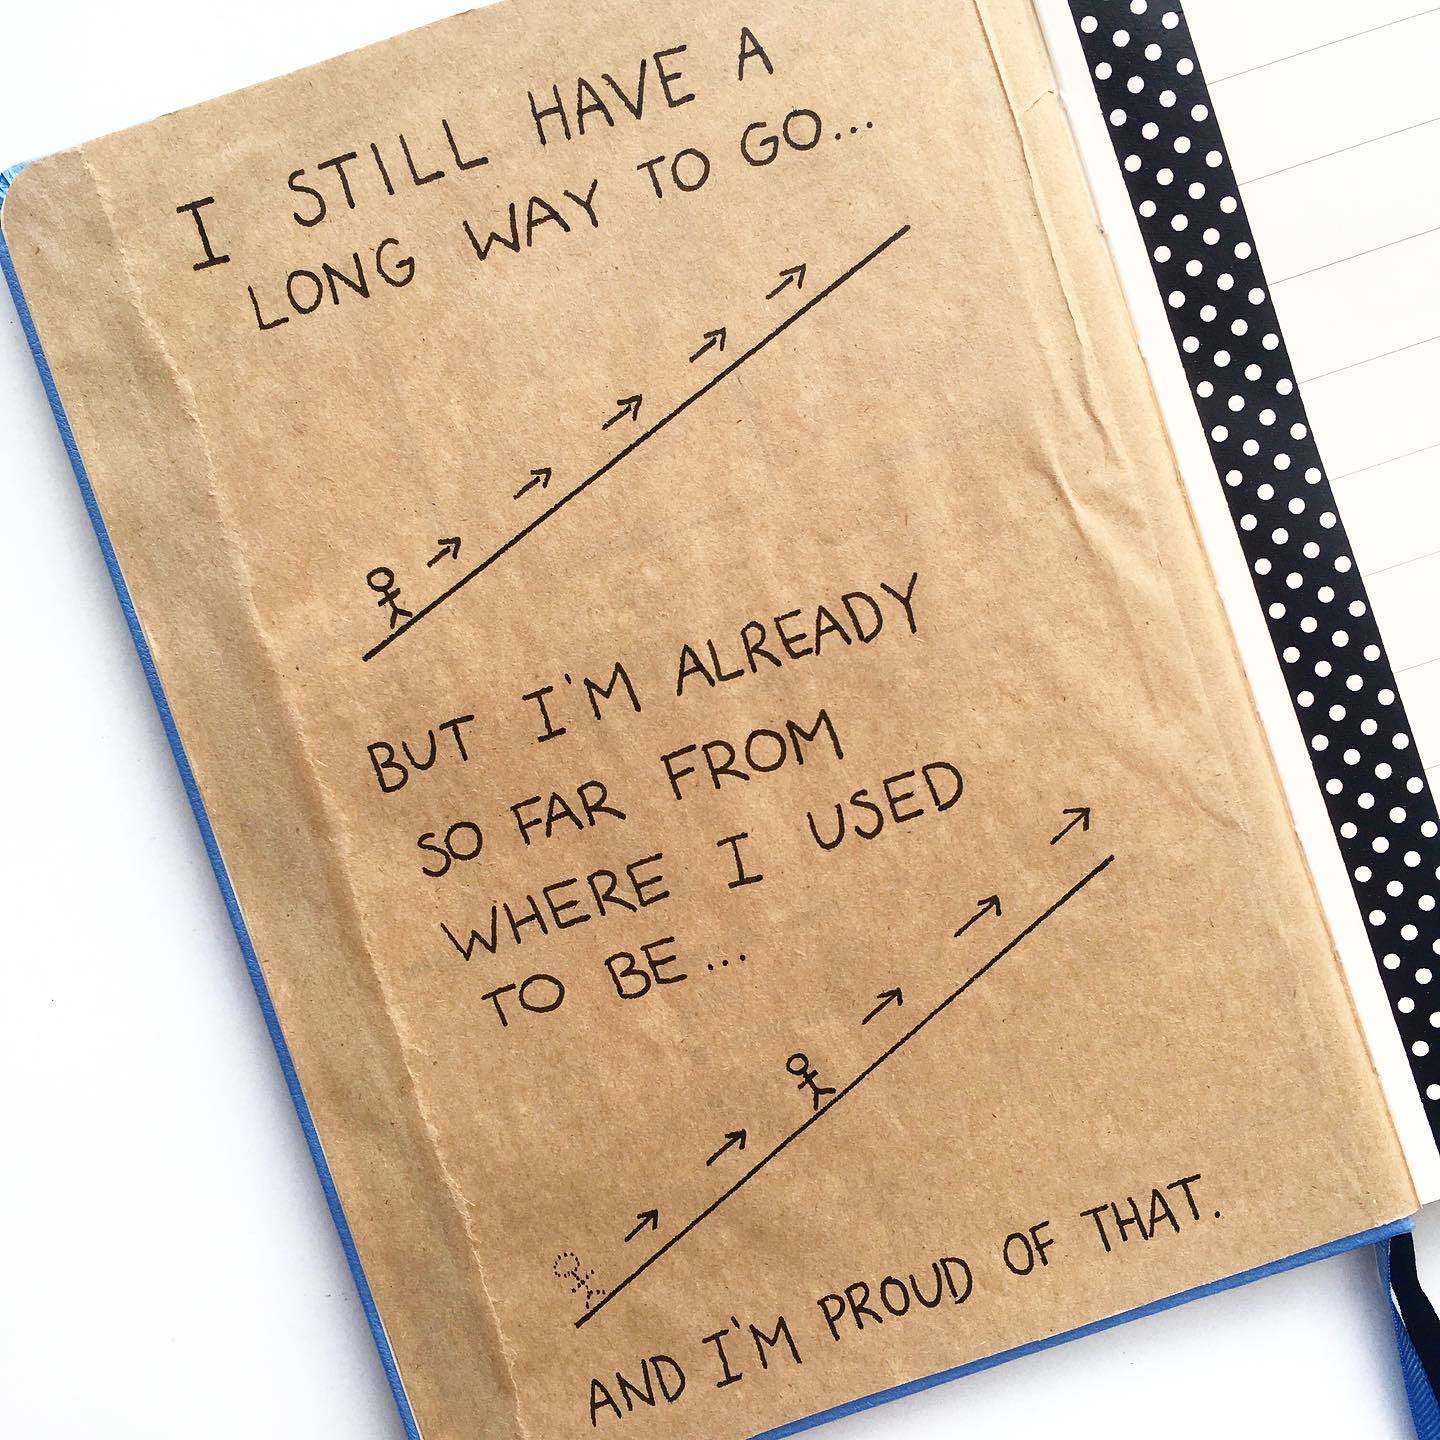 I STILL HAVE A
LONG WAY TO GO...
BUT I'M ALREADY
SO FAR FROM
WHERE I USED
TO BE...
AND I'M PROUD OF THAT.